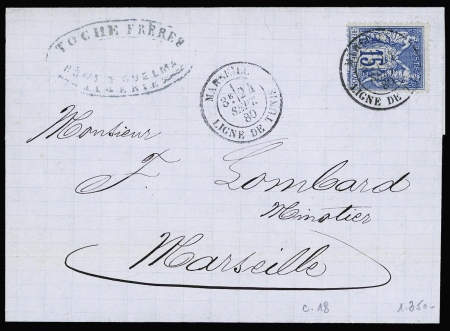 TOCHE FRÈRES
GUELMA
ALGÉRIE
MARSEILLE
24
SEPT
80
LIGNE DE TUNIS
15
LIGNE DE
Monsieur
F. Lombard
Minotier
Marseille
c. 18
1.350-